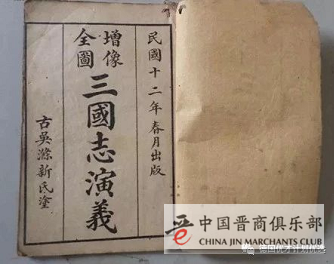 民國十二年春月出版
增像
全圖
三國志演義
古吳滌新氏塗
晋
中国晋商俱乐部
CHINA JIN MERCHANTS CLUB